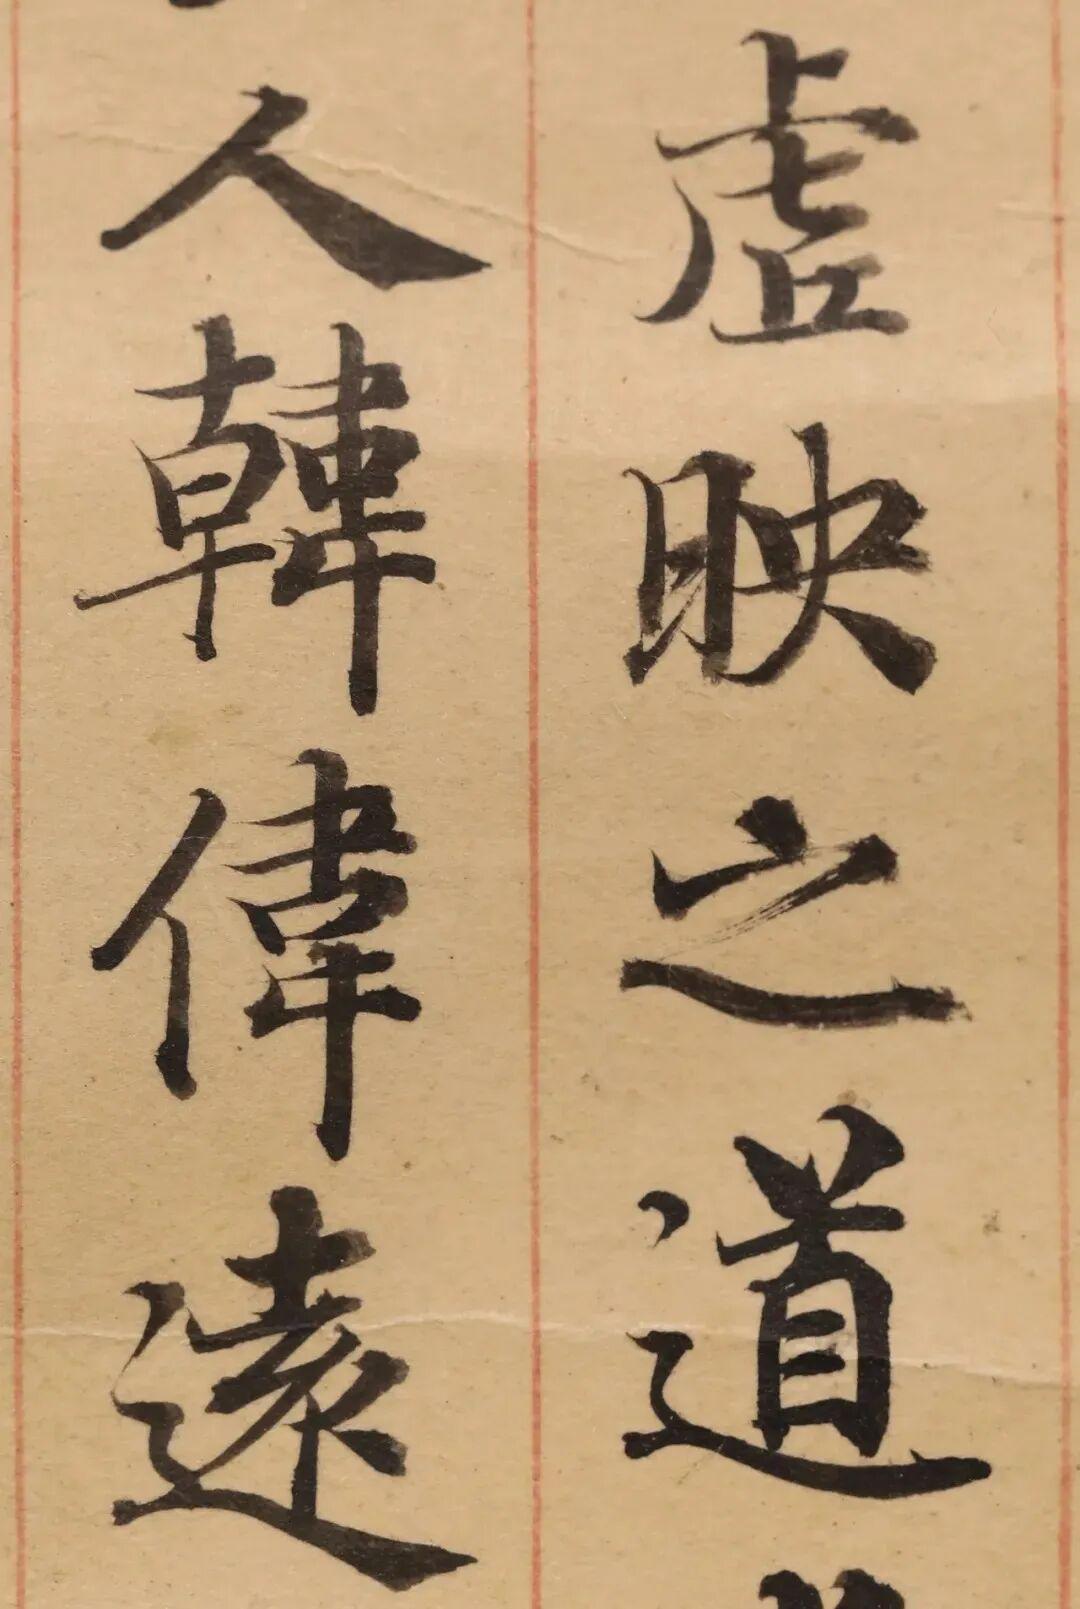 虗映之道
人韓偉遠